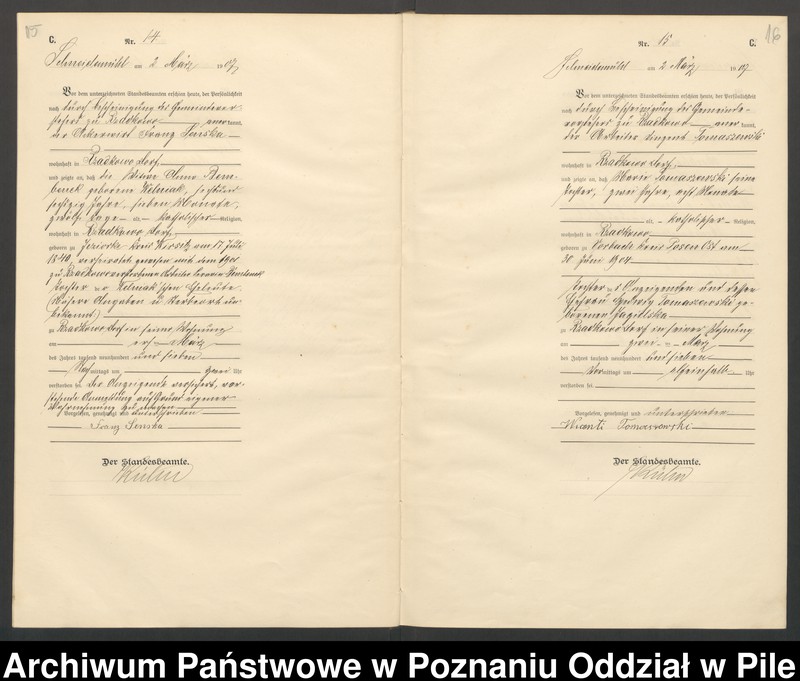 15
C.
Nr. 14
Schneidemühl am 2 März 1907,
Vor dem unterzeichneten Standesbeamten erschien heute, der Persönlichkeit
nach durch Bescheinigung des Gemeindevor-
stehers zu Rzadkowo anerkannt,
der Ackerwirt Franz Senska
wohnhaft in Rzadkowo Dorf
und zeigte an, daß die Witwe Anna
geborene
sechzig Jahre, sieben Monate,
zwölf Tage alt, katholischer Religion,
wohnhaft in Rzadkowo Dorf
geboren zu Kreis Wirsitz am 17. Juli
1840, verheiratet gewesen mit dem 1901
zu Rzadkowo verstorbenen Arbeiter
Tochter der 'schen Eheleute.
(Nähere Angaben u Sterbeort un-
bekannt)
zu Rzadkowo Dorf in seine Wohnung
am ersten März
des Jahres tausend neunhundert und sieben
Nachmittags um zwei Uhr
verstorben sei. Der Anzeigende versichert, vor-
stehende Anmeldung auf Grund eigener
Wahrnehmung zu machen
Vorgelesen, genehmigt und unterschrieben
Franz Senska
Der Standesbeamte.
Kühn
16
C.
Nr. 15
Schneidemühl am 2 März 1907
Vor dem unterzeichneten Standesbeamten erschien heute, der Persönlichkeit
nach durch Bescheinigung des Gemeinde-
vorstehers zu Rzadkowo anerkannt,
der Arbeiter Vinzent Tomaszewski
wohnhaft in Rzadkowo Dorf
und zeigte an, daß Marie Tomaszewski seine
Tochter, zwei Jahre, acht Monate
alt, katholischer Religion,
wohnhaft in Rzadkowo
geboren zu Kreis Posen Ost am
30 Juni 1904
Tochter des Anzeigenden und dessen
Ehefrau Hedwig Tomaszewski ge-
borenen Jagielska
zu Rzadkowo Dorf in seiner Wohnung
am zwei-ten März
des Jahres tausend neunhundert und sieben
Vormittags um Uhr
verstorben sei.
Vorgelesen, genehmigt und unterschrieben
Wicenti Tomaszewski
Der Standesbeamte.
Kühn
Archiwum Państwowe w Poznaniu Oddział w Pile